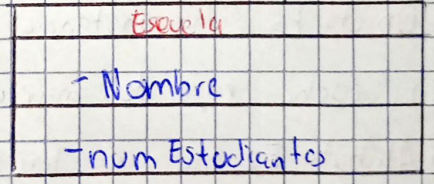 Escuela
- Nombre
- num Estudiantes